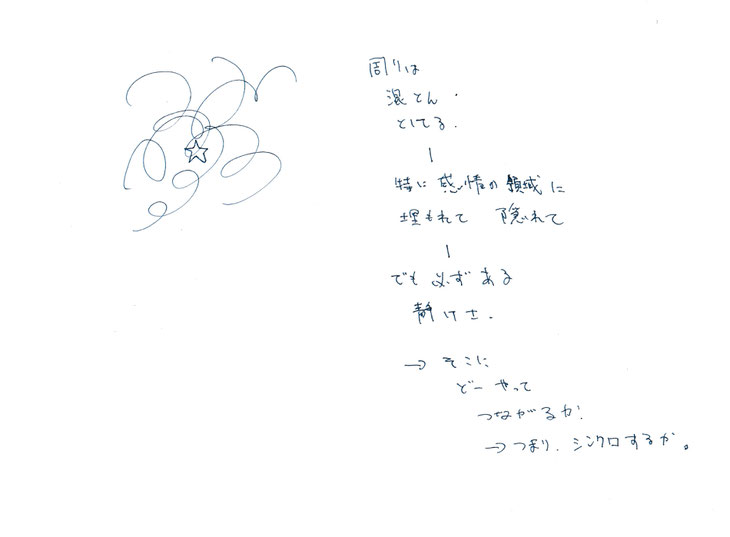 周りは
混とん.
としてる.
特に 感情の領域に
埋もれて 隠れて
でも 必ず ある
静けさ.
→ そこに
どーやって
つながるか!
→ つまり. シンクロするか。